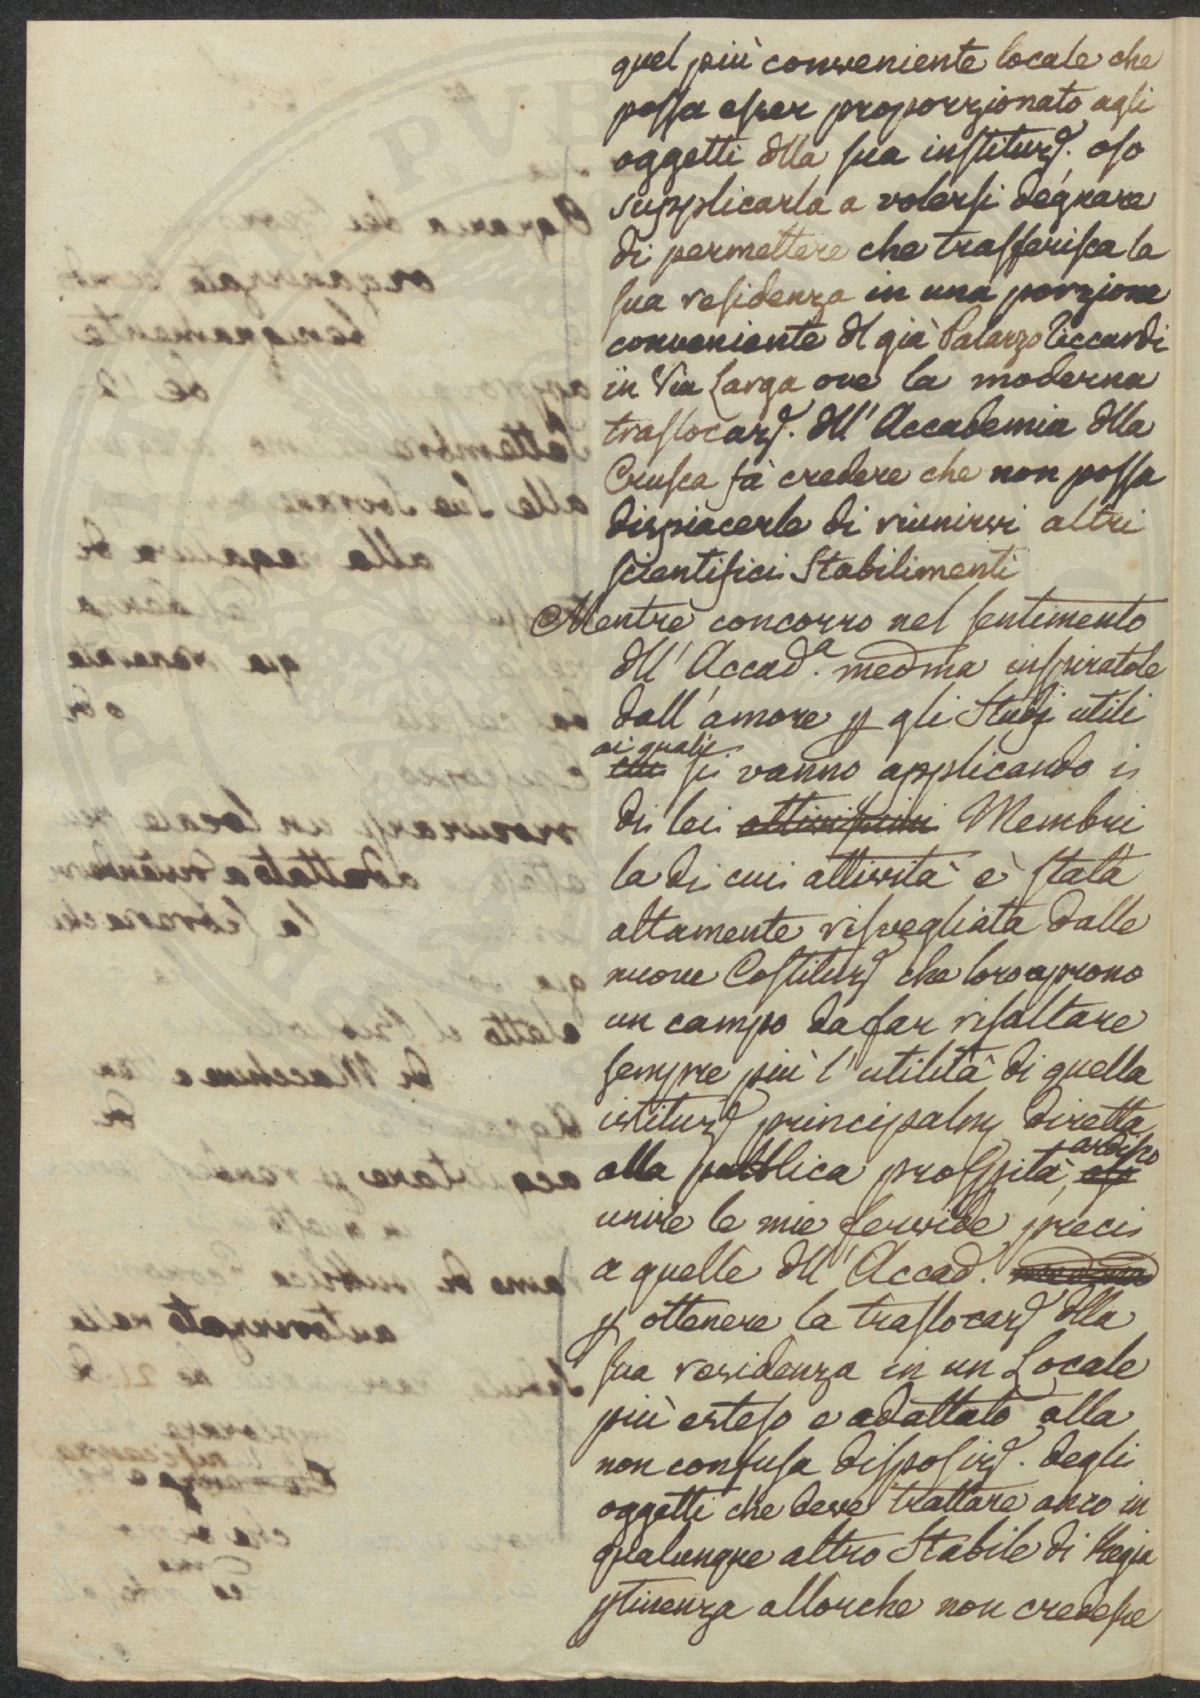 quel più conveniente locale che
possa esser proporzionato agli
oggetti dlla sua instituzᵉ. oso
supplicarla a volersi degnare
di permettere che trasferisca la
sua residenza in una porzione
conveniente dl già Palazzo Riccardi
in Via Larga ove la moderna
traslocazᵉ. dll' Accademia dlla
Crusca fà credere che non possa
dispiacerle di riunirvi altri
scientifici Stabilimenti
Mentre concorro nel sentimento
dll' Accadᵃ. medma inspiratole
dall'amore p gli Studj utili
ai quali si vanno applicando i
di lei Membri
la di cui attività è stata
altamente risvegliata dalle
nuove Costituzᵉ che loro aprono
un campo da far risaltare
sempre più l'utilità di quella
istituzᵉ principalmᵉ diretta
alla pubblica prosspità, ardisco
unire le mie fervide preci
a quelle dll' Accadᵃ.
p ottenere la traslocazᵉ dlla
sua residenza in un Locale
più esteso e adattato alla
non confusa disposizᵉ. degli
oggetti che deve trattare anco in
qualunque altro Stabile di Regia
ptinenza allorche non credesse